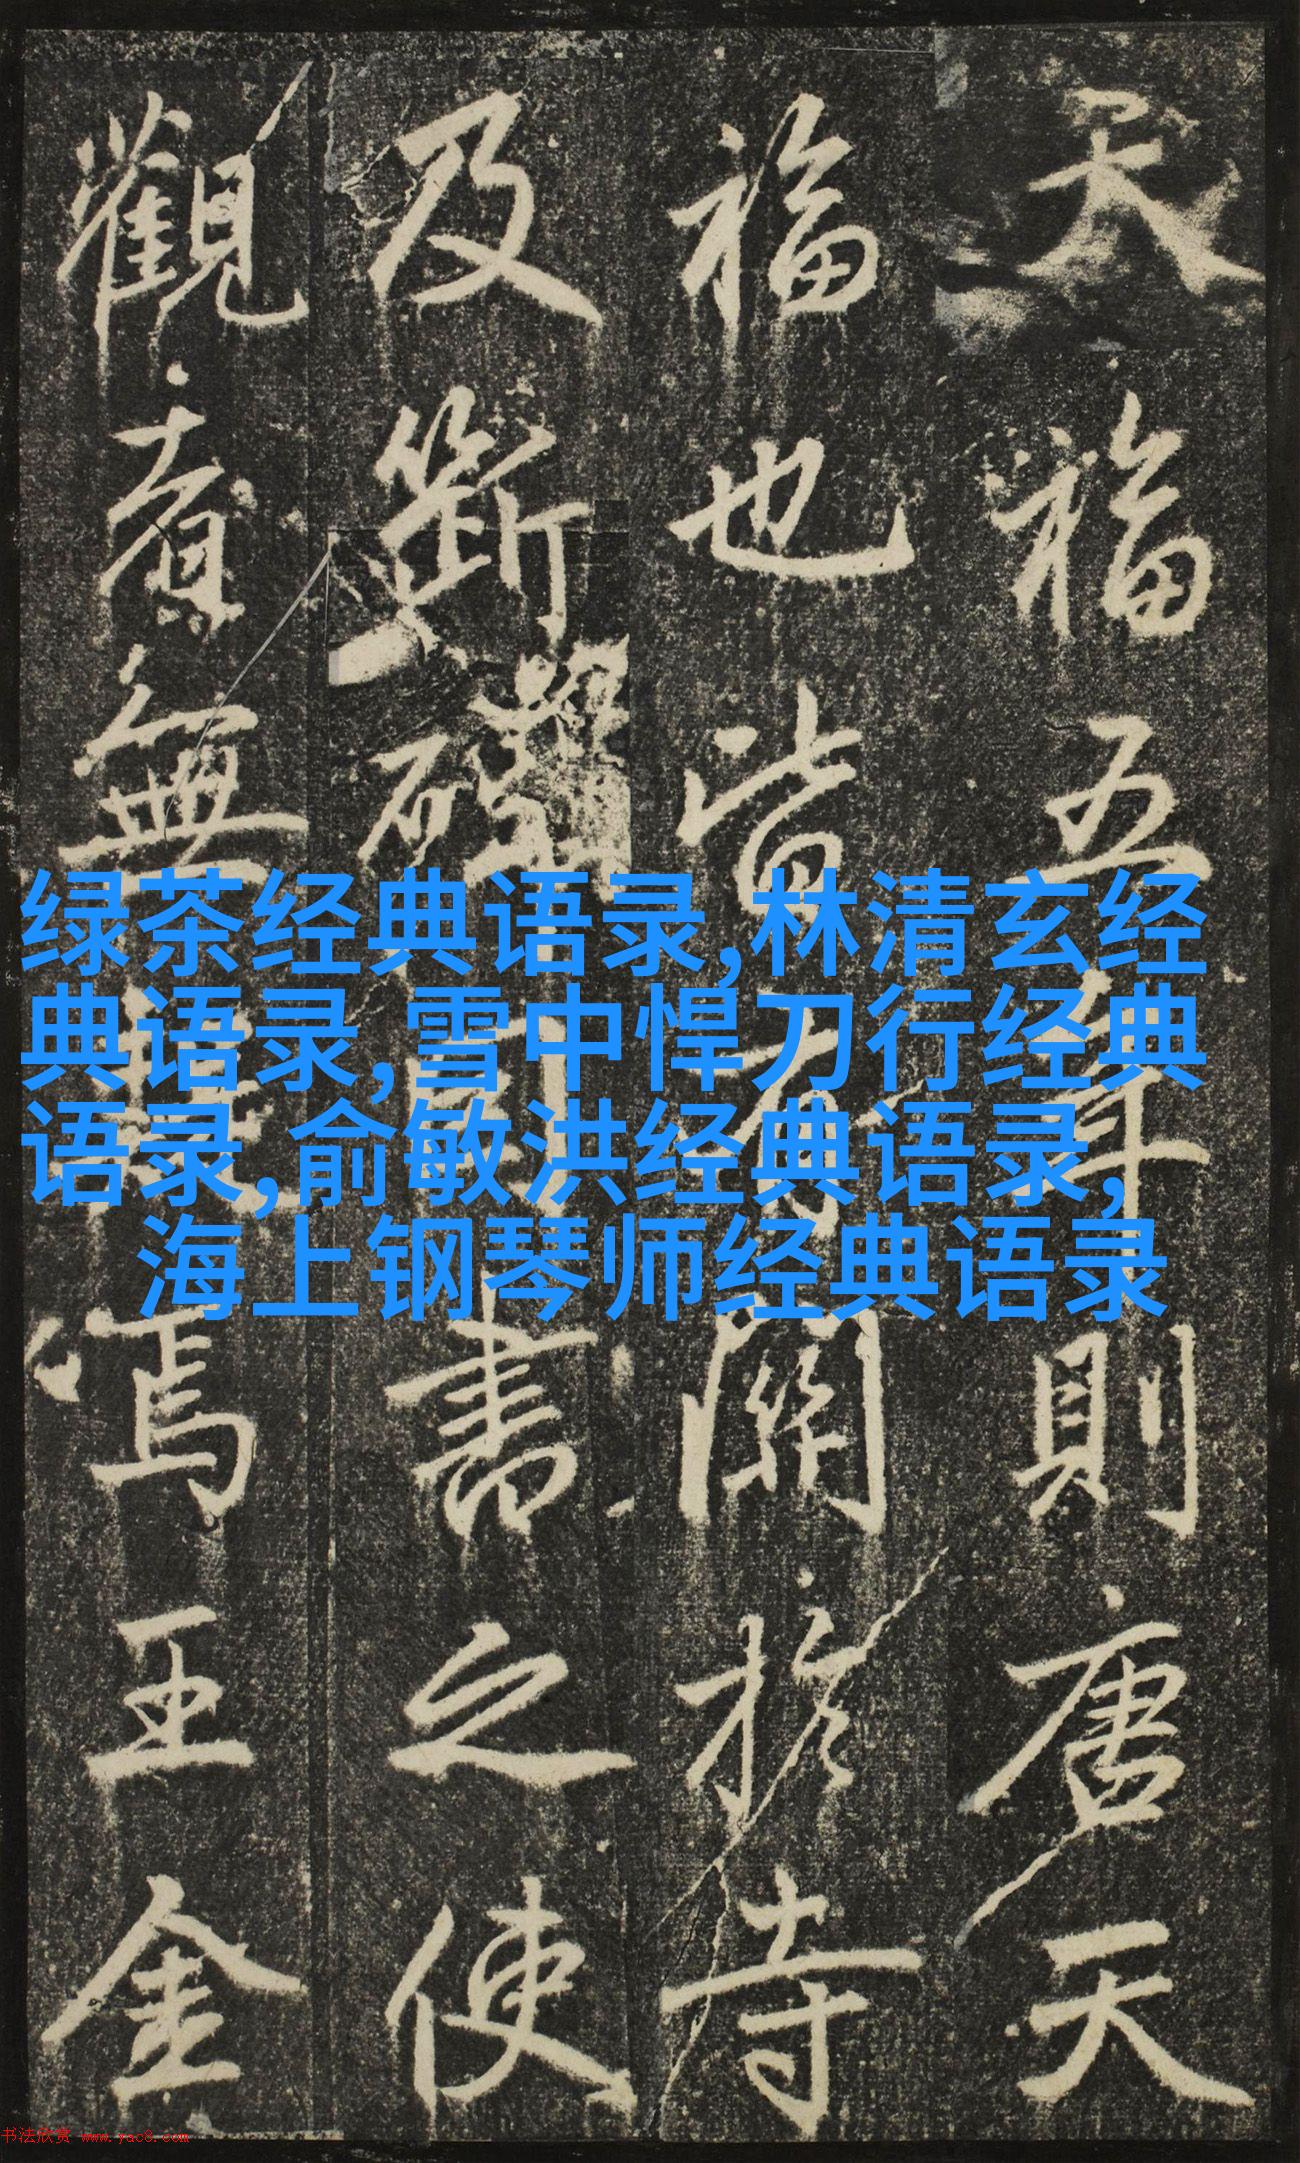 天福五年則唐天
福也皆有關於寺
及斷書之使
觀無焉王金
绿茶经典语录,林清玄经
典语录,雪中悍刀行经典
语录,俞敏洪经典语录,
海上钢琴师经典语录
书法欣赏 www.yac8.com